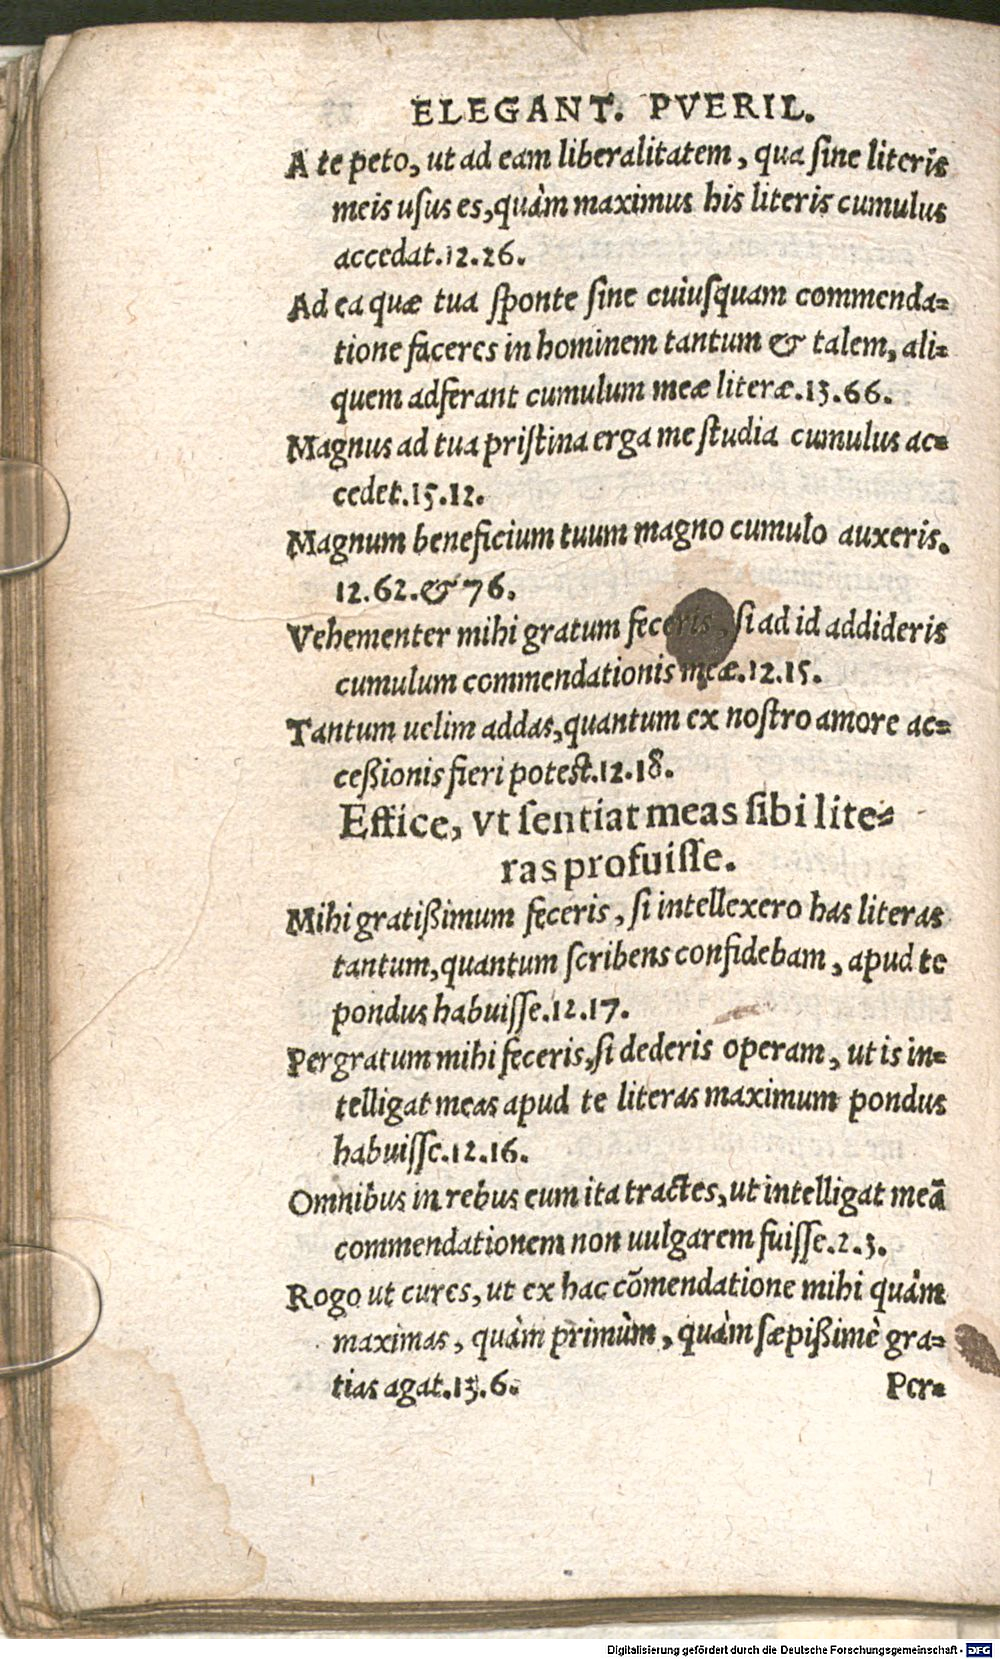 ELEGANT. PVERIL.
A te peto, ut ad eam liberalitatem, qua sine literis
meis usus es, quàm maximus his literis cumulus
accedat. 12. 26.
Ad ea quæ tua sponte sine cuiusquam commenda=
tione faceres in hominem tantum & talem, ali=
quem adferant cumulum meæ literæ. 13. 66.
Magnus ad tua pristina erga me studia cumulus ac=
cedet. 15. 12.
Magnum beneficium tuum magno cumulo auxeris.
12. 62. & 76.
Vehementer mihi gratum feceris, si ad id addideris
cumulum commendationis meæ. 12. 15.
Tantum uelim addas, quantum ex nostro amore ac=
ceßionis fieri potest. 12. 18.
Effice, vt sentiat meas sibi lite=
ras profuisse.
Mihi gratißimum feceris, si intellexero has literas
tantum, quantum scribens confidebam, apud te
pondus habuisse. 12. 17.
Pergratum mihi feceris, si dederis operam, ut is in=
telligat meas apud te literas maximum pondus
habuisse. 12. 16.
Omnibus in rebus eum ita tractes, ut intelligat meā
commendationem non uulgarem fuisse. 2. 3.
Rogo ut cures, ut ex hac cōmendatione mihi quàm
maximas, quàm primùm, quàm sæpißimè gra=
tias agat. 13. 6.
Per=
Digitalisierung gefördert durch die Deutsche Forschungsgemeinschaft - DFG